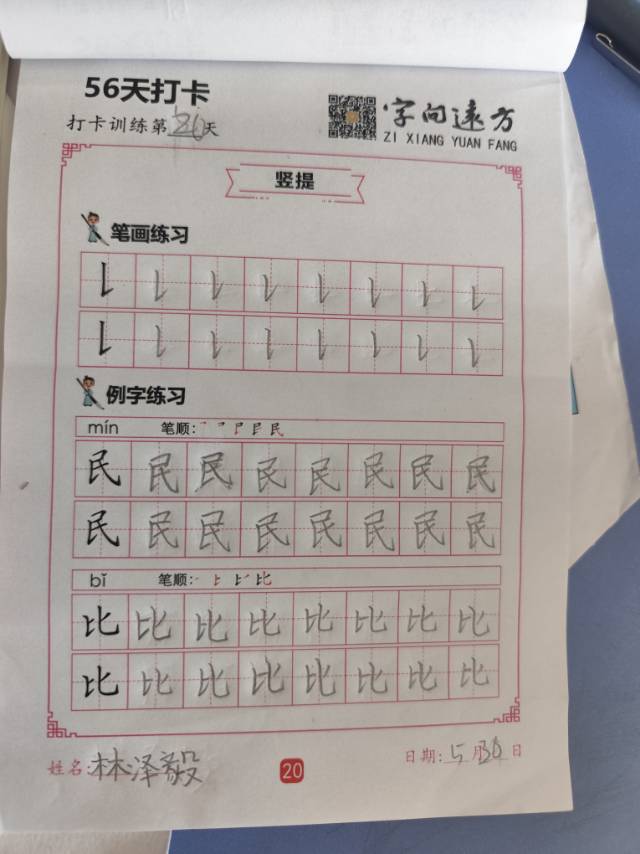 56天打卡
打卡训练第26天
字向远方
ZI XIANG YUAN FANG
竖提
笔画练习
例字练习
mín 笔顺:
民 民 民 民 民 民 民 民
民 民 民 民 民 民 民 民
bǐ 笔顺:
比 比 比 比 比 比 比 比
比 比 比 比 比 比 比 比
姓名:林泽毅 20 日期:5月30日